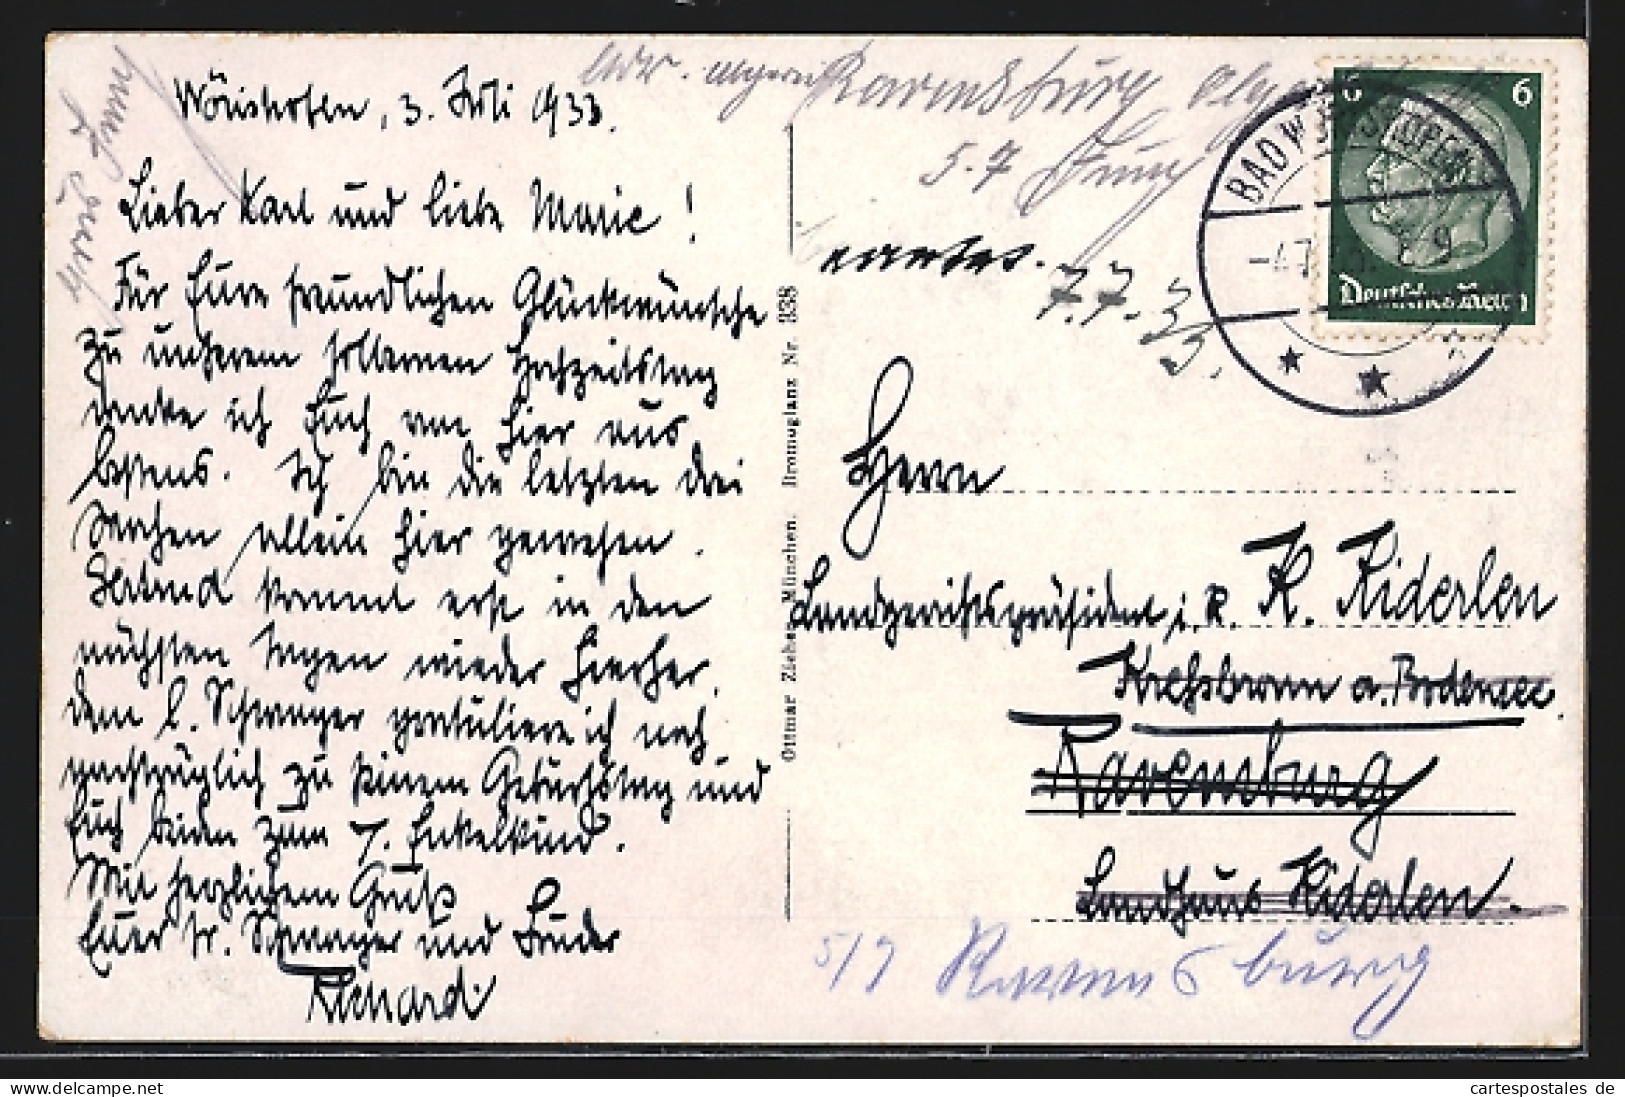 Wörishofen, 3. Juli 1933.
Lieber Karl und liebe Marie!
Für Eure freundlichen Glückwünsche
zu unserem Hochzeitstag
danke ich Euch von hier aus
bestens. Ich bin die letzten drei
Wochen allein hier gewesen.
kommt erst in den
nächsten Tagen wieder hierher.
Dem l. Schwager gratuliere ich noch
nachträglich zu seinem Geburtstag und
Euch beiden zum 7. Enkelkind.
Mit herzlichem Gruß
Euer tr. Schwager und Bruder
Richard
Ottmar Zieher, München. Bromuglanz Nr. 338
Ravensburg
5.7
7.7.33.
6 6
Deutsches Reich
BAD WÖRISHOFEN
Herrn
Landgerichtspräsident i. R. K. Kiderlen
Kressbronn a. Bodensee
Ravensburg
Landhaus Kiderlen.
5/7 Ravensburg
cartespostales de